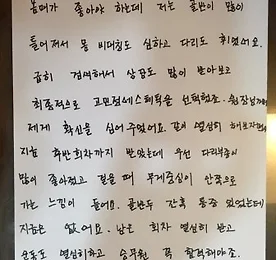 몸매가 좋아야 하는데 저는 골반이 많이
틀어져서 몸 비대칭도 심하고 다리도 휘었어요.
급히 검색해서 상담도 많이 받아보고
최종적으로 고운정에스테틱을 선택했죠. 원장님께서
제게 확신을 심어 주었어요. 같이 열심히 해보자면서
지금 화반회차까지 받았는데 우선 다리부종이
많이 좋아졌고 걸을 때 무게중심이 안쪽으로
가는 느낌이 들어요. 골반두 간혹 통증 있었는데
지금은 없어요. 남은 회차 열심히 받고
운동도 열심히하고 승무원 꼭 합격해야죠.